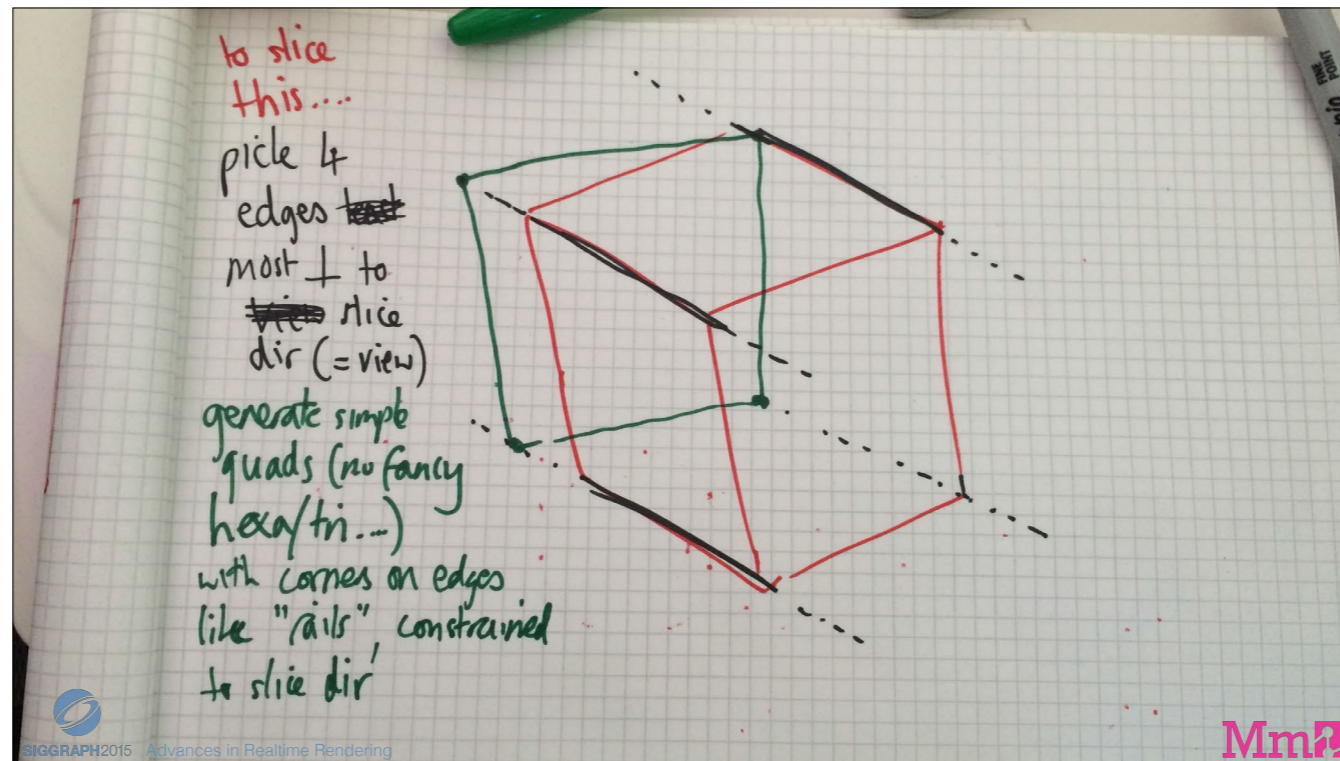 to slice
this....
pick 4
edges
most ⊥ to
slice
dir (=view)
generate simple
quads (no fancy
hexa/tri...)
with corners on edges
like "rails", constrained
to slice dir
FINE
POINT
SIGGRAPH2015 Advances in Realtime Rendering
Mm